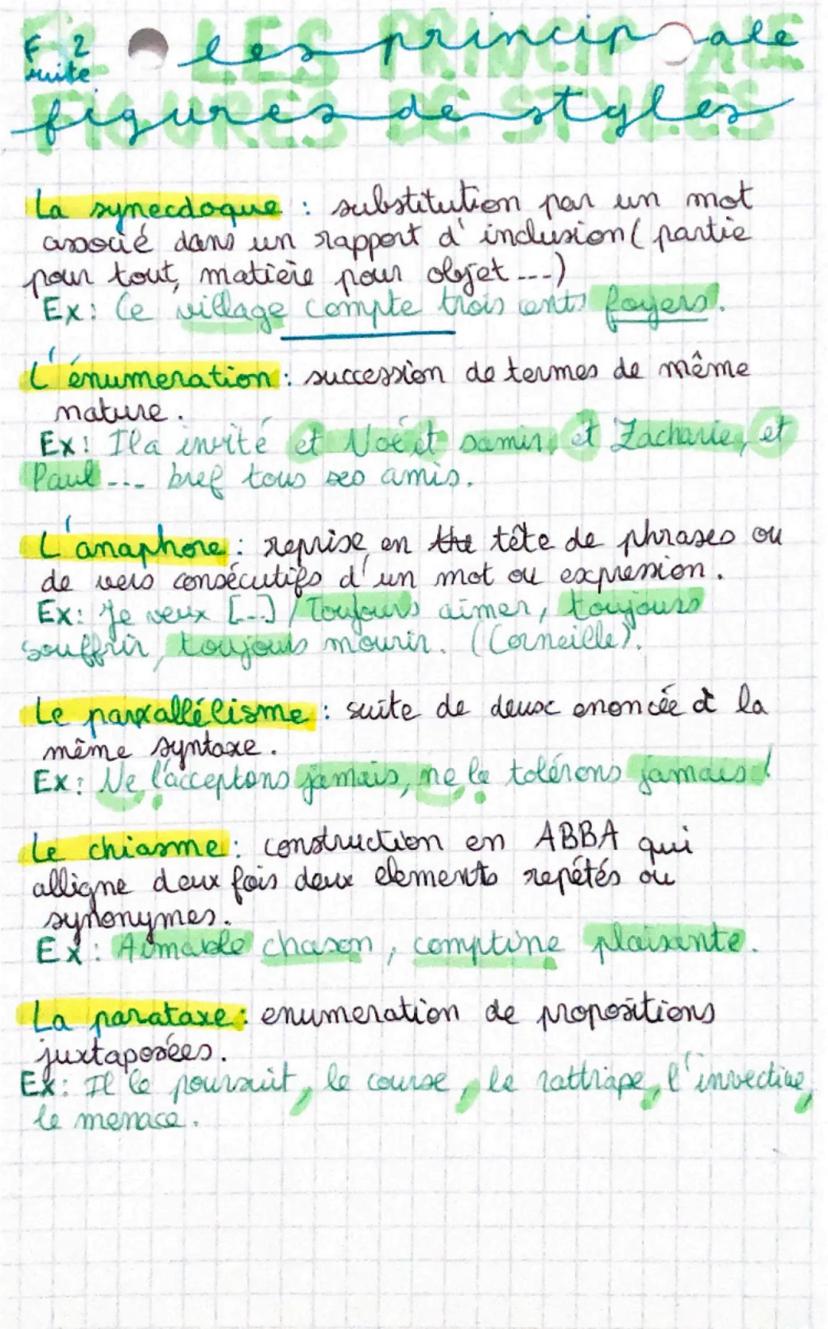 F 2 les principale
suite
LES PRINCIPALE
figures de styles
FIGURES DE STYLES
La synecdoque : substitution par un mot
associé dans un rapport d'inclusion (partie
pour tout, matière pour objet ...)
Ex : Ce village compte trois cents foyers.
L'énumeration : succession de termes de même
nature.
Ex : Il a invité et Noé et samir, et Zacharie, et
Paul ... bref tous ses amis.
L'anaphore : reprise en tête de phrases ou
de vers consécutifs d'un mot ou expression.
Ex : Je veux [...] / Toujours aimer, toujours
souffrir, toujours mourir. (Corneille).
Le parallélisme : suite de deux enoncée à la
même syntaxe.
Ex : Ne l'acceptons jamais, ne le tolérons jamais !
Le chiasme : construction en ABBA qui
alligne deux fois deux elements repétés ou
synonymes.
Ex : Aimable chason, comptine plaisante.
La parataxe : enumeration de propositions
juxtaposées.
Ex : Il le poursuit, le course, le rattrape, l'invective,
le menace.